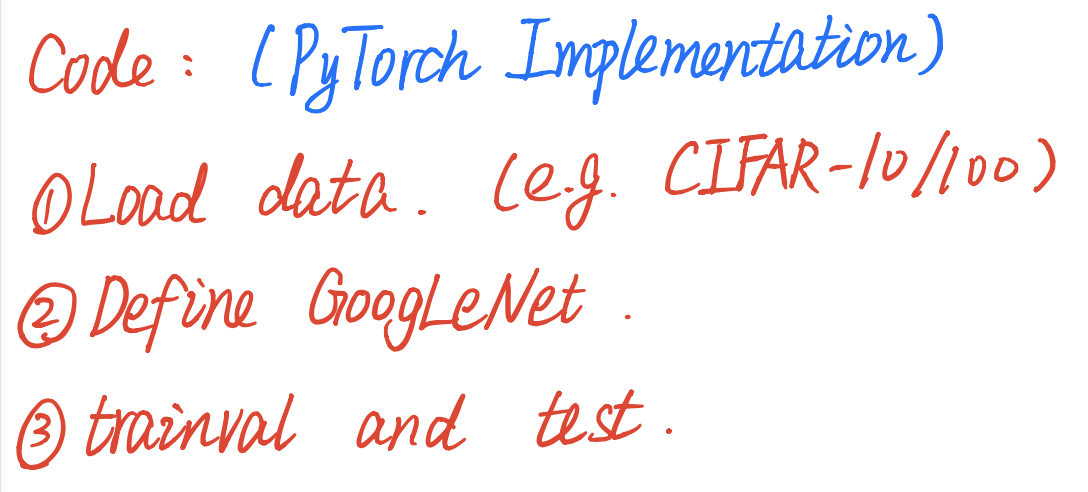 Code: (PyTorch Implementation)
①Load data. (e.g. CIFAR-10/100)
②Define GoogLeNet.
③trainval and test.